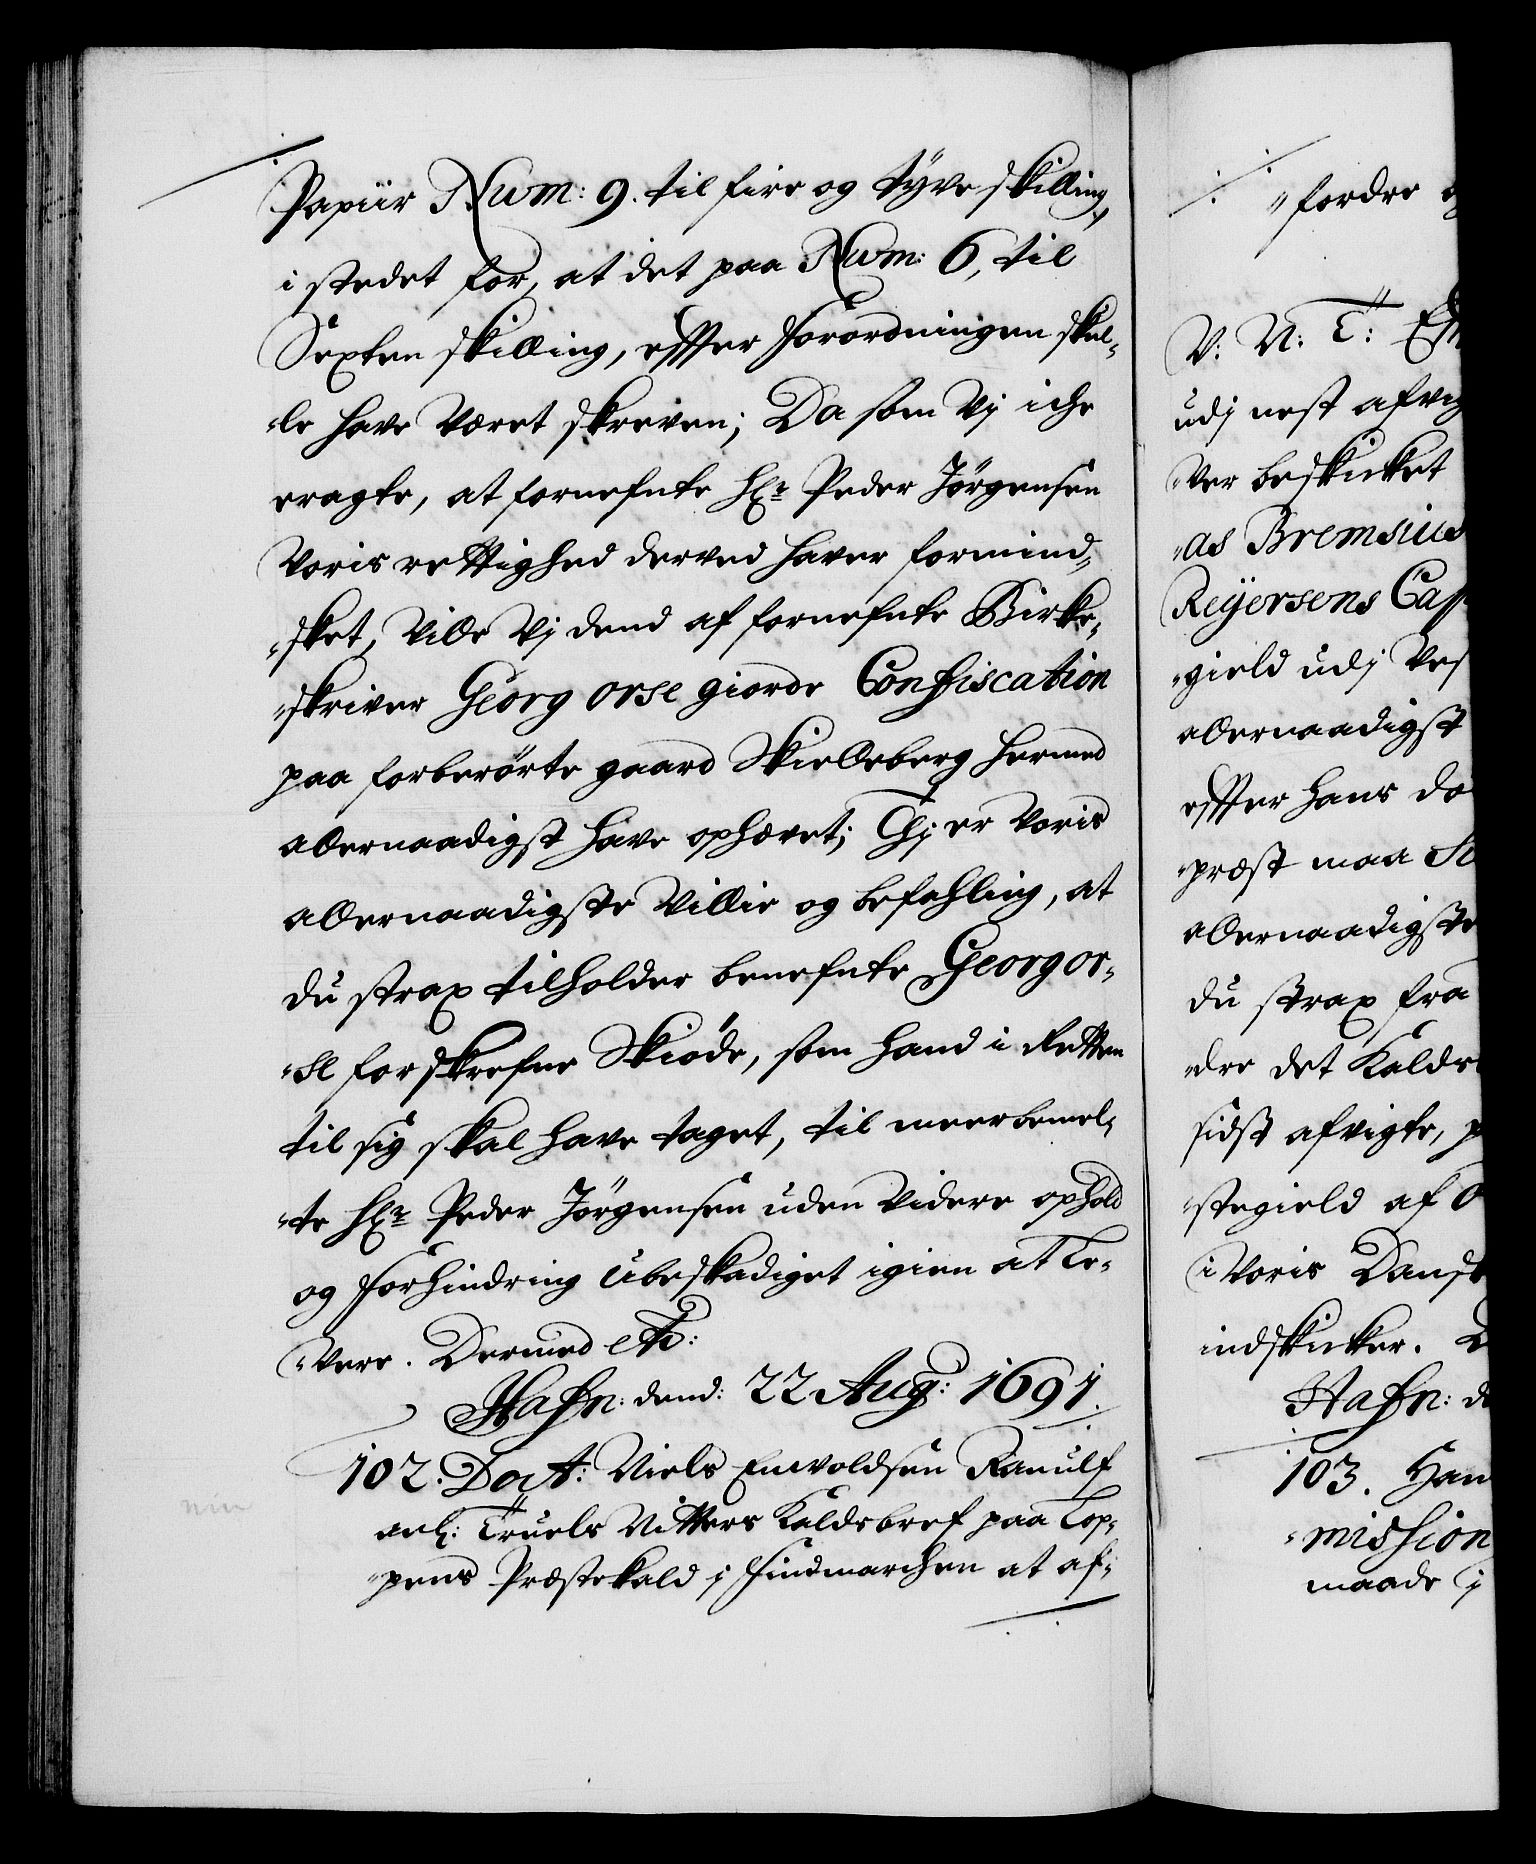 Papiir Num: 9. til fire og tÿve skilling,
i stedet for, at det paa Num: 6, til
Sexten skilling, effter Forordningen skul-
-le have Været skreven; Da som Vj iche
eragte, at fornefnte Hr: Peder Jörgensen
Voris rettighed derved haver formind-
-sket, Ville Vj dend af fornefnte Birke-
-skriver Georg Orse giorde Confiscation
paa forberörte gaard Skielleberg hermed
allernaadigst have ophævet; Thj er Voris
allernaadigste Villie og befahling, at
du strax tilholder benefnte Georg Or-
-se forskrefne Skiöde, som hand i Retten
til sig skal have taget, til meerbemel-
-te Hr: Peder Jörgensen uden Videre ophold
og forhindring Ubeskadiget igien at Le-
-Vere. Dermed etc:
Hafn: dend: 22 Aug: 1691.
102. Doct: Niels Enevoldsen Ranulf
anl: Truels Vitters Kaldsbref paa Lop-
-pens Præstekald j Findmarchen at af-
-fordre
V: N: T:
udj nest afvig
-Ver beskicket
-as Bremsius
Reijersens Cap
-gield udj Ves
allernaadigst
effter hans dö
-præst maa
allernaadigste
du strax fra
-dre det Kalds
sidst afvigte,
-stegield af
i Voris Dansk
indskicker.
Hafn: d
103. Han
-mission
maade j